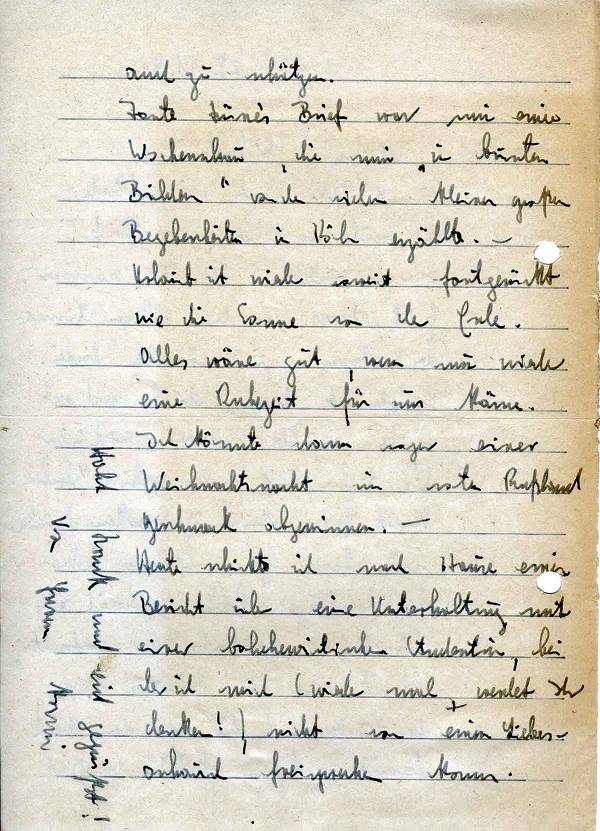 und zu stützen.
Tante Änne's Brief war mir eine
Wochenschau, die mir „in bunten
Bildern" von den vielen kleinen großen
Begebenheiten in Köln erzählte. —
Urlaub ist wieder soweit fortgerückt
wie die Sonne von der Erde.
Alles wäre gut, wenn nur wieder
eine Ruhezeit für uns käme.
Ich könnte dann sogar einer
Weihnachtsnacht im roten Rußland
Geschmack abgewinnen. —
Heute schickte ich nach Hause einen
Bericht über eine Unterhaltung mit
einer bolschewistischen Studentin, bei
der ich mich (wieder mal, werdet Ihr
denken!), nicht von einem Liebes-
freisprechen kann.
Habt Dank und seid gegrüßt!
Von Eurem